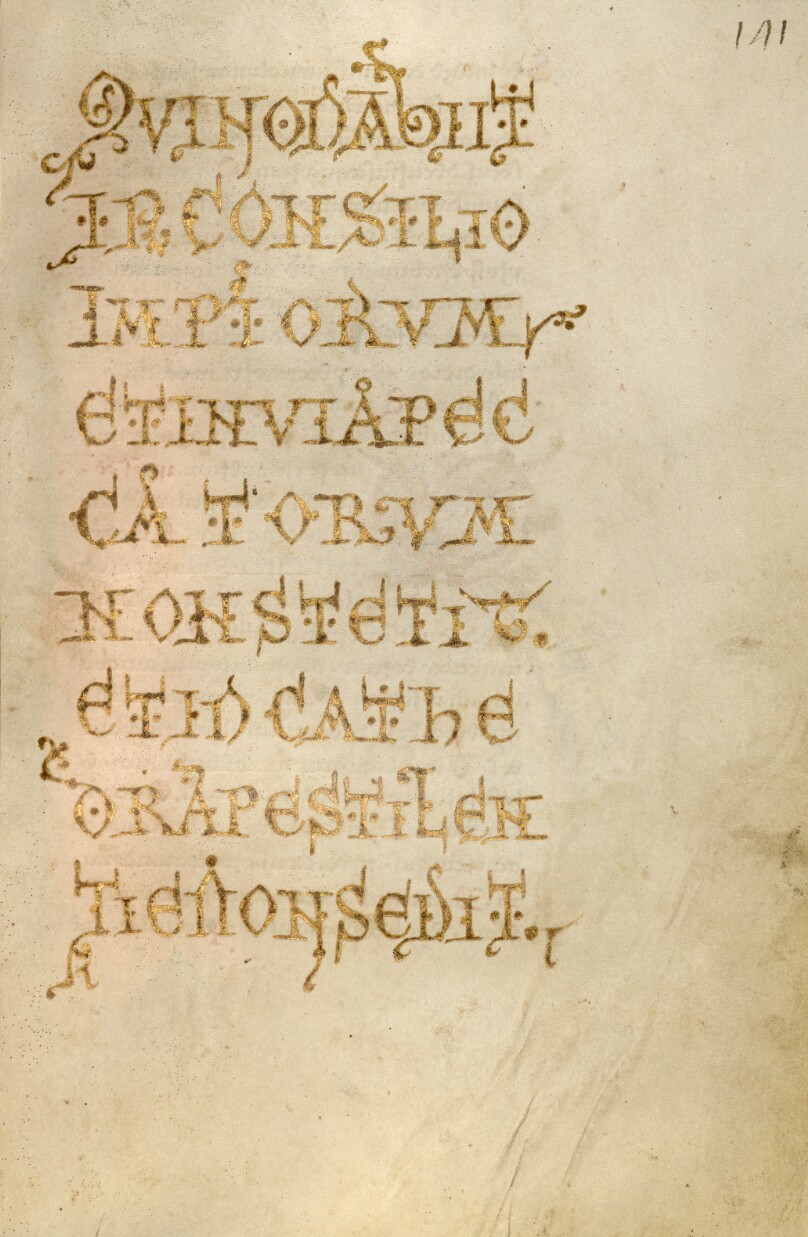 141
QVI NON ABIIT
IN CONSILIO
IMPIORVM
ET IN VIA PEC
CATORVM
NON STETIT.
ET IN CATHE
DRA PESTILEN
TIE NON SEDIT.